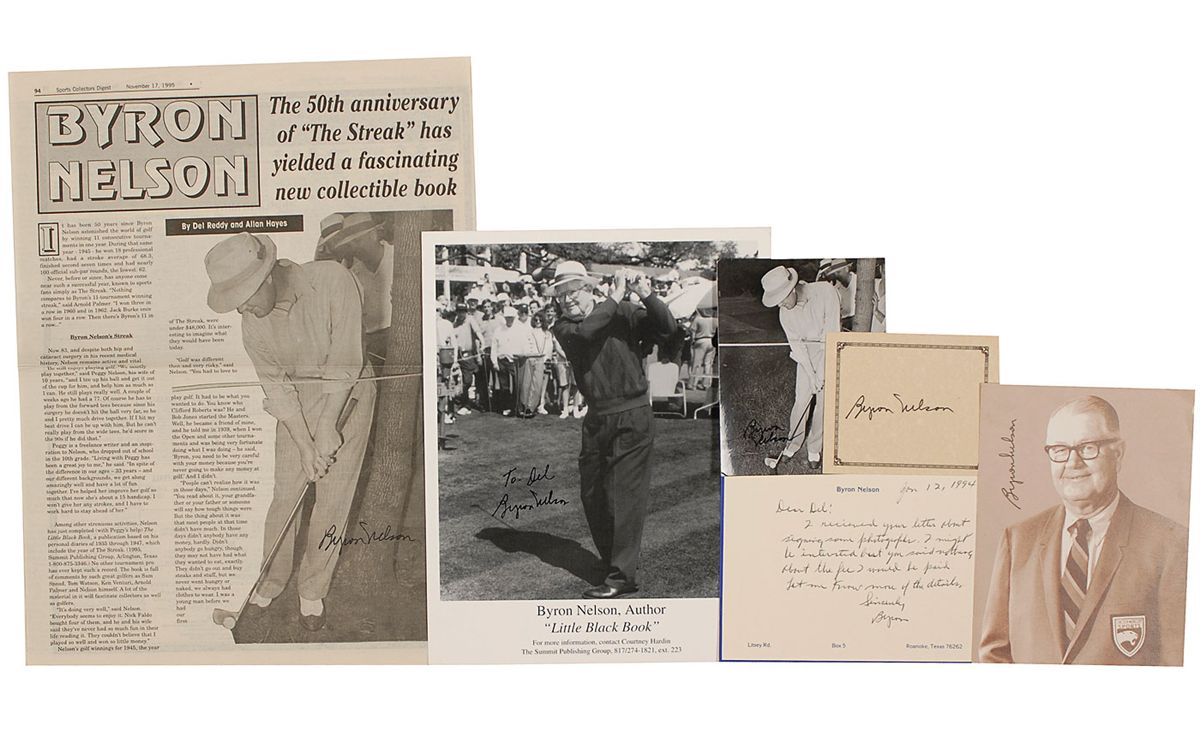 94 Sports Collectors Digest November 17, 1995
BYRON
NELSON
The 50th anniversary
of "The Streak" has
yielded a fascinating
new collectible book
By Del Reddy and Allan Hayes
It has been 50 years since Byron
Nelson astonished the world of golf
by winning 11 consecutive tourna-
ments in one year. During that same
year - 1945 - he won 18 professional
matches, had a stroke average of 68.3,
finished second seven times and had nearly
100 official sub-par rounds, the lowest: 62.
Never, before or since, has anyone come
near such a successful year, known to sports
fans simply as The Streak. "Nothing
compares to Byron's 11-tournament winning
streak," said Arnold Palmer. "I won three in
a row in 1960 and in 1962. Jack Burke once
won four in a row. Then there's Byron's 11 in
a row..."
Byron Nelson's Streak
Now 83, and despite both hip and
cataract surgery in his recent medical
history, Nelson remains active and vital.
He still enjoys playing golf. "We mostly
play together," said Peggy Nelson, his wife of
10 years, "and I tee up his ball and get it out
of the cup for him, and help him as much as
I can. He still plays really well. A couple of
weeks ago he had a 77. Of course he has to
play from the forward tees because since his
surgery he doesn't hit the ball very far, so he
and I pretty much drive together. If I hit my
best drive I can be up with him. But he can't
really play from the wide tees, he'd score in
the 90s if he did that."
Peggy is a freelance writer and an inspi-
ration to Nelson, who dropped out of school
in the 10th grade. "Living with Peggy has
been a great joy to me," he said. "In spite of
the difference in our ages - 33 years - and
our different backgrounds, we get along
amazingly well and have a lot of fun
together. I've helped her improve her golf so
much that now she's about a 15 handicap. I
won't give her any strokes, and I have to
work hard to stay ahead of her."
Among other strenuous activities, Nelson
has just completed (with Peggy's help) The
Little Black Book, a publication based on his
personal diaries from 1935 through 1947, which
include the year of The Streak. (1995,
Summit Publishing Group, Arlington, Texas
1-800-875-3346.) No other tournament pro
has ever kept such a record. The book is full
of comments by such great golfers as Sam
Snead, Tom Watson, Ken Venturi, Arnold
Palmer and Nelson himself. A lot of the
material in it will fascinate collectors as well
as golfers.
"It's doing very well," said Nelson.
"Everybody seems to enjoy it. Nick Faldo
bought four of them, and he and his wife
said they've never had so much fun in their
life reading it. They couldn't believe that I
played so well and won so little money."
Nelson's golf winnings for 1945, the year
of The Streak, were
under $48,000. It's inter-
esting to imagine what
they would have been
today.
"Golf was different
then and very risky," said
Nelson. "You had to love to
play golf. It had to be what you
wanted to do. You know who
Clifford Roberts was? He and
Bob Jones started the Masters.
Well, he became a friend of mine,
and he told me in 1939, when I won
the Open and some other tourna-
ments and was being very fortunate
doing what I was doing - he said,
'Byron, you need to be very careful
with your money because you're
never going to make any money at
golf.' And I didn't.
"People can't realize how it was
in those days," Nelson continued.
"You read about it, your grandfa-
ther or your father or someone
will say how tough things were.
But the thing about it was
that most people at that time
didn't have much. In those
days didn't anybody have any
money, hardly. Didn't
anybody go hungry, though
they may not have had what
they wanted to eat, exactly.
They didn't go out and buy
steaks and stuff, but we
never went hungry or
naked, we always had
clothes to wear. I was a
young man before we
had
our
first
Byron Nelson
To Del
Byron Nelson
Byron Nelson, Author
"Little Black Book"
For more information, contact Courtney Hardin
The Summit Publishing Group, 817/274-1821, ext. 223
Byron
Nelson
Byron Nelson
Byron Nelson
Jan 12, 1994
Dear Del:
I received your letter about
signing some photographs. I might
be interested but you said nothing
about the fee I would be paid
Let me know more of the details,
Sincerely
Byron
Litsey Rd. Box 5 Roanoke, Texas 76262
Byron Nelson